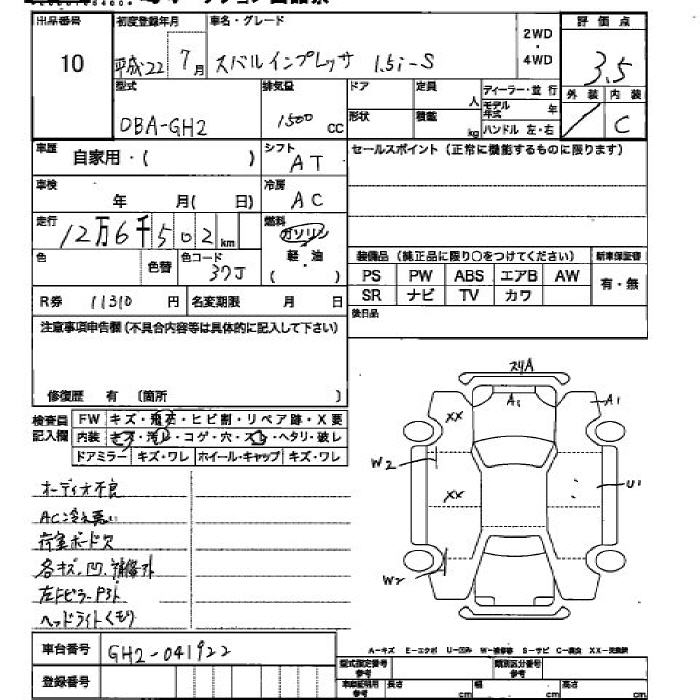 出品番号
10
初度登録年月
平成22 7月
車名・グレード
スバルインプレッサ 1.5i-S
2WD
・
4WD
評価点
3.5
外装 内装
C
型式
DBA-GH2
排気量
1500 CC
ドア
定員
人
形状
積載
kg
ディーラー・並行
モデル年式 年
ハンドル 左・右
車歴
自家用・( )
シフト
AT
セールスポイント(正常に機能するものに限ります)
車検
年 月( 日)
冷房
AC
走行
12万6千502km
燃料
ガソリン
軽・油
( )
色
色替
色コード
37J
装備品(純正品に限り○をつけてください)
新車保証書
PS PW ABS エアB AW
有・無
SR ナビ TV カワ
R券 11310 円
名変期限 月 日
後日品
注意事項申告欄(不具合内容等は具体的に記入して下さい)
修復歴 有 〔箇所 〕
検査員
記入欄
FW キズ・飛石・ヒビ割・リペア跡・X要
内装 キズ・汚レ・コゲ・穴・スレ・ヘタリ・破レ
ドアミラー キズ・ワレ ホイール・キャップ キズ・ワレ
オーディオ不良
AC冷え悪い
荷室ボード欠
各キズ.凹.補修跡
ヘッドライトくもり
スリA
A1
A1
XX
W2
XX
U1
W2
車台番号
GH2-041922
登録番号
A-キズ E-エクボ U-凹み W-補修跡 S-サビ C-腐食 XX-交換済
型式指定番号
参考
類別区分番号
参考
車庫証明用
参考
長さ cm
幅 cm
高さ cm